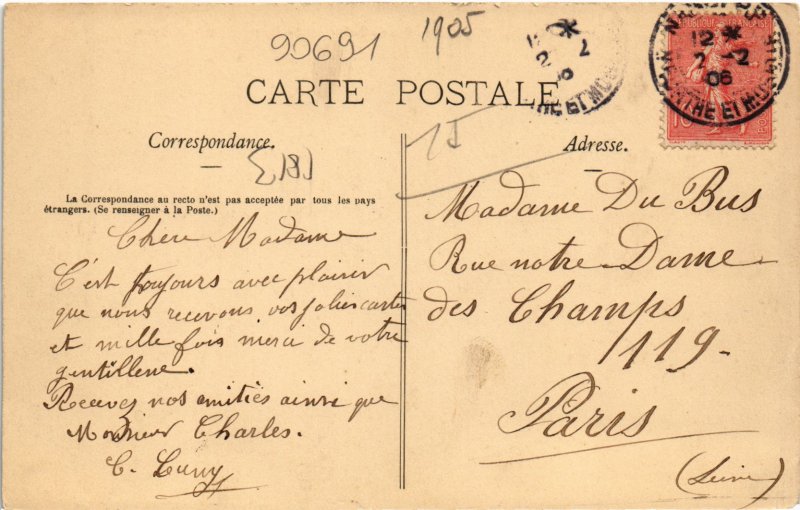 90691
1905
CARTE POSTALE
Correspondance.
Adresse.
La Correspondance au recto n'est pas acceptée par tous les pays
étrangers. (Se renseigner à la Poste.)
Chère Madame
C'est toujours avec plaisir
que nous recevons vos jolies cartes
et mille fois merci de votre
gentillesse.
Recevez nos amitiés ainsi que
Monsieur Charles.
C. Cuny
Madame Du Bus
Rue notre-Dame-
des Champs
119-
Paris
(Seine)
REPUBLIQUE FRANÇAISE
10
12
2-2
06